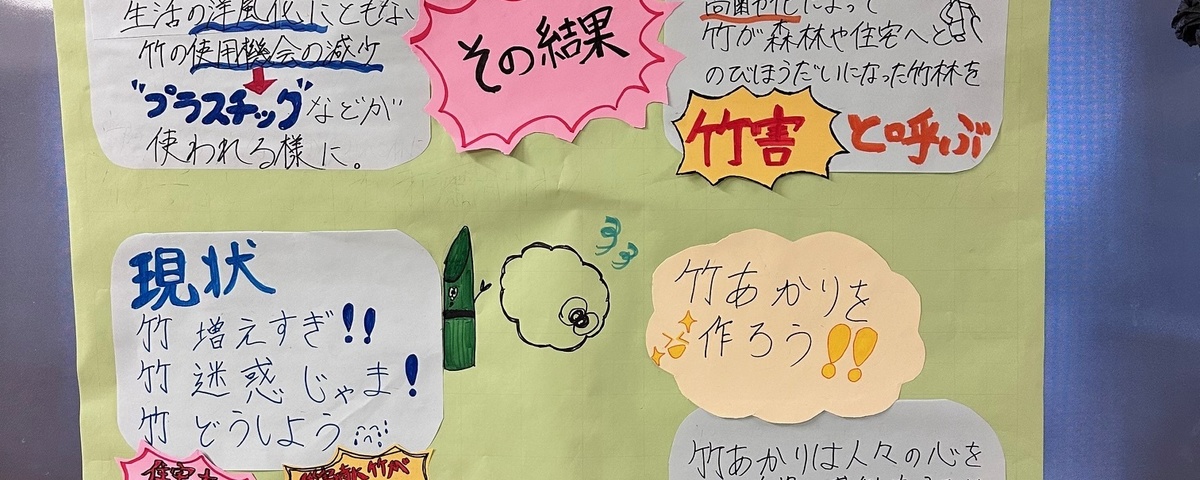 生活の洋風化にともない
竹の使用機会の減少
"プラスチック"などが
使われる様に。
その結果
高齢化によって
竹が森林や住宅へと
のびほうだいになった竹林を
竹害と呼ぶ
現状
竹 増えすぎ!!
竹 迷惑 じゃま!
竹 どうしよう
竹あかりを
作ろう!!
竹あかりは人々の心を